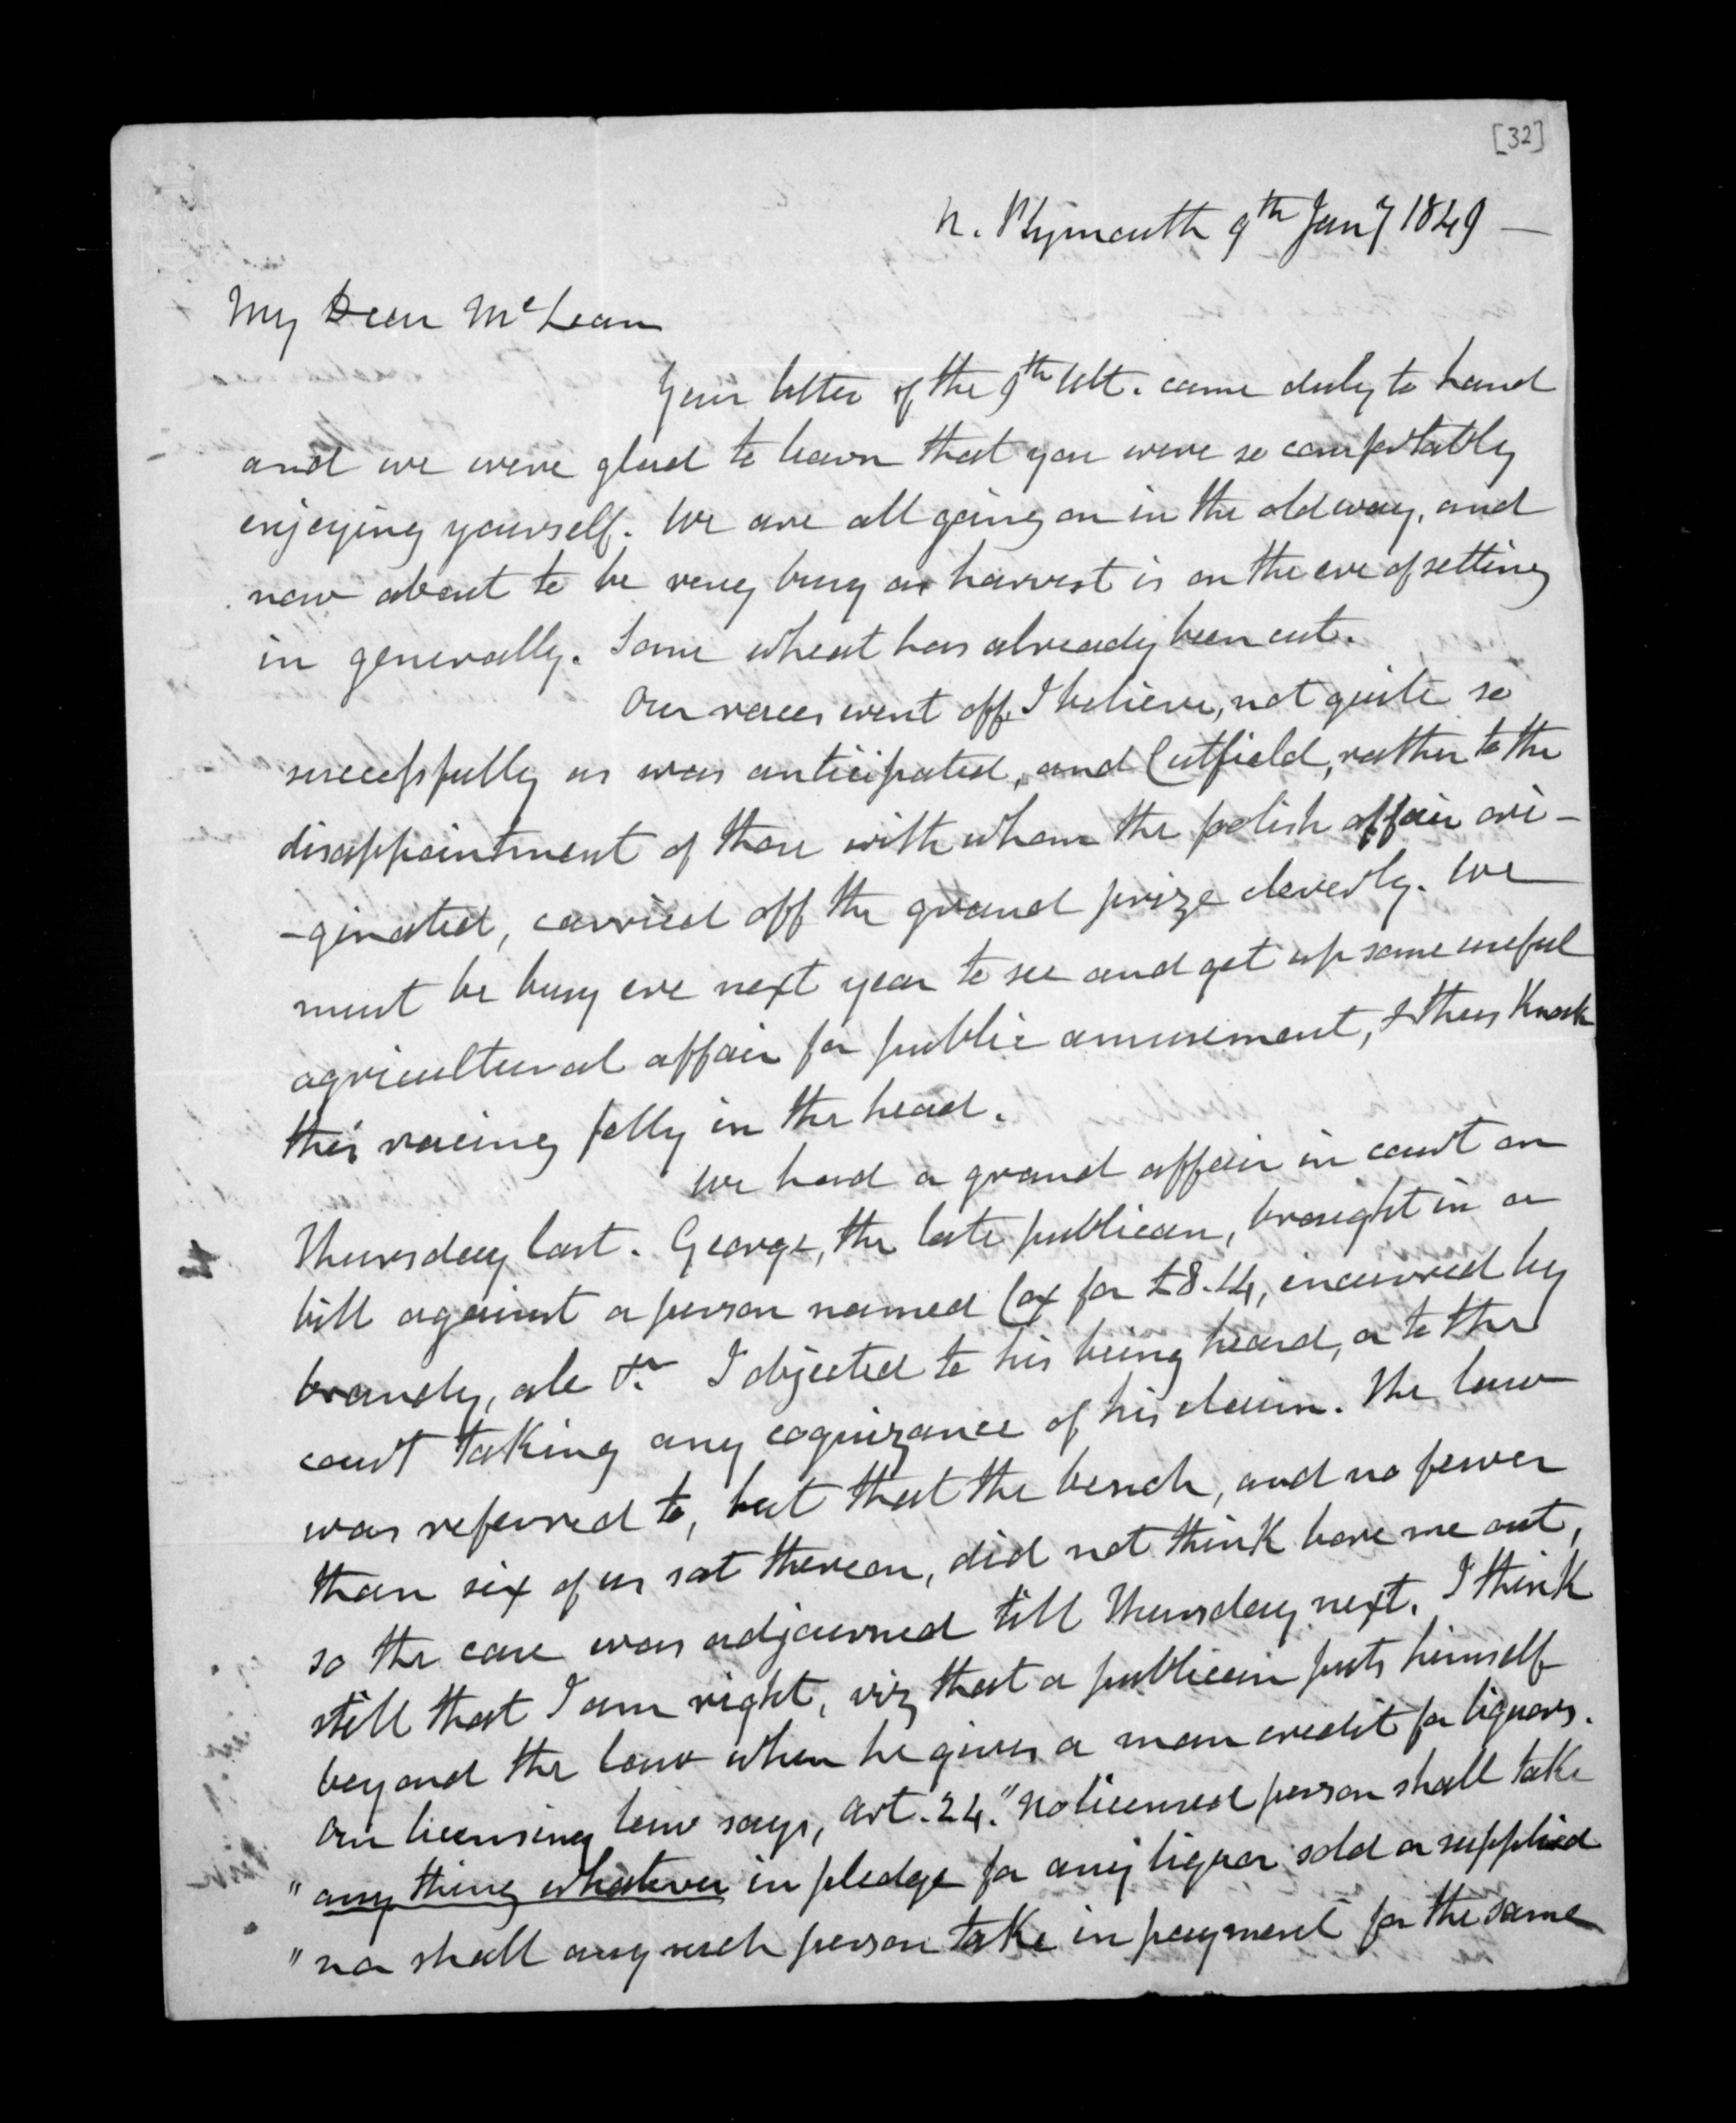 [32]
N. Plymouth 9th Jany 1849 —
My Dear McLean
Your letter of the 9th Ult. came duly to hand
and we were glad to learn that you were so comfortably
enjoying yourself. We are all going on in the old way, and
now about to be very busy as harvest is on the eve of setting
in generally. Some wheat has already been cut.
Our races went off, I believe, not quite so
successfully as was anticipated, and Cutfield, rather to the
disappointment of those with whom the foolish affair ori-
-ginated, carried off the grand prize cleverly. We
must be busy ere next year to see and get up some useful
agricultural affair for public amusement, & thus Knock
this racing folly in the head.
We had a grand affair in court on
Thursday last. George, the late publican, brought in a
bill against a person named Cox for £8.14, incurred by
brandy, ale &c I objected to his being heard, or to the
court taking any cognizance of his claim. The law
was referred to, but that the bench, and no fewer
than six of us sat thereon, did not think bore me out,
so the case was adjourned till Thursday next. I think
still that I am right, viz that a publican puts himself
beyond the law when he gives a man credit for liquors.
Our licensing law says, Art. 24. "No licensed person shall take
" any thing whatever in pledge for any liquor sold or supplied
" nor shall any such person take in payment for the same